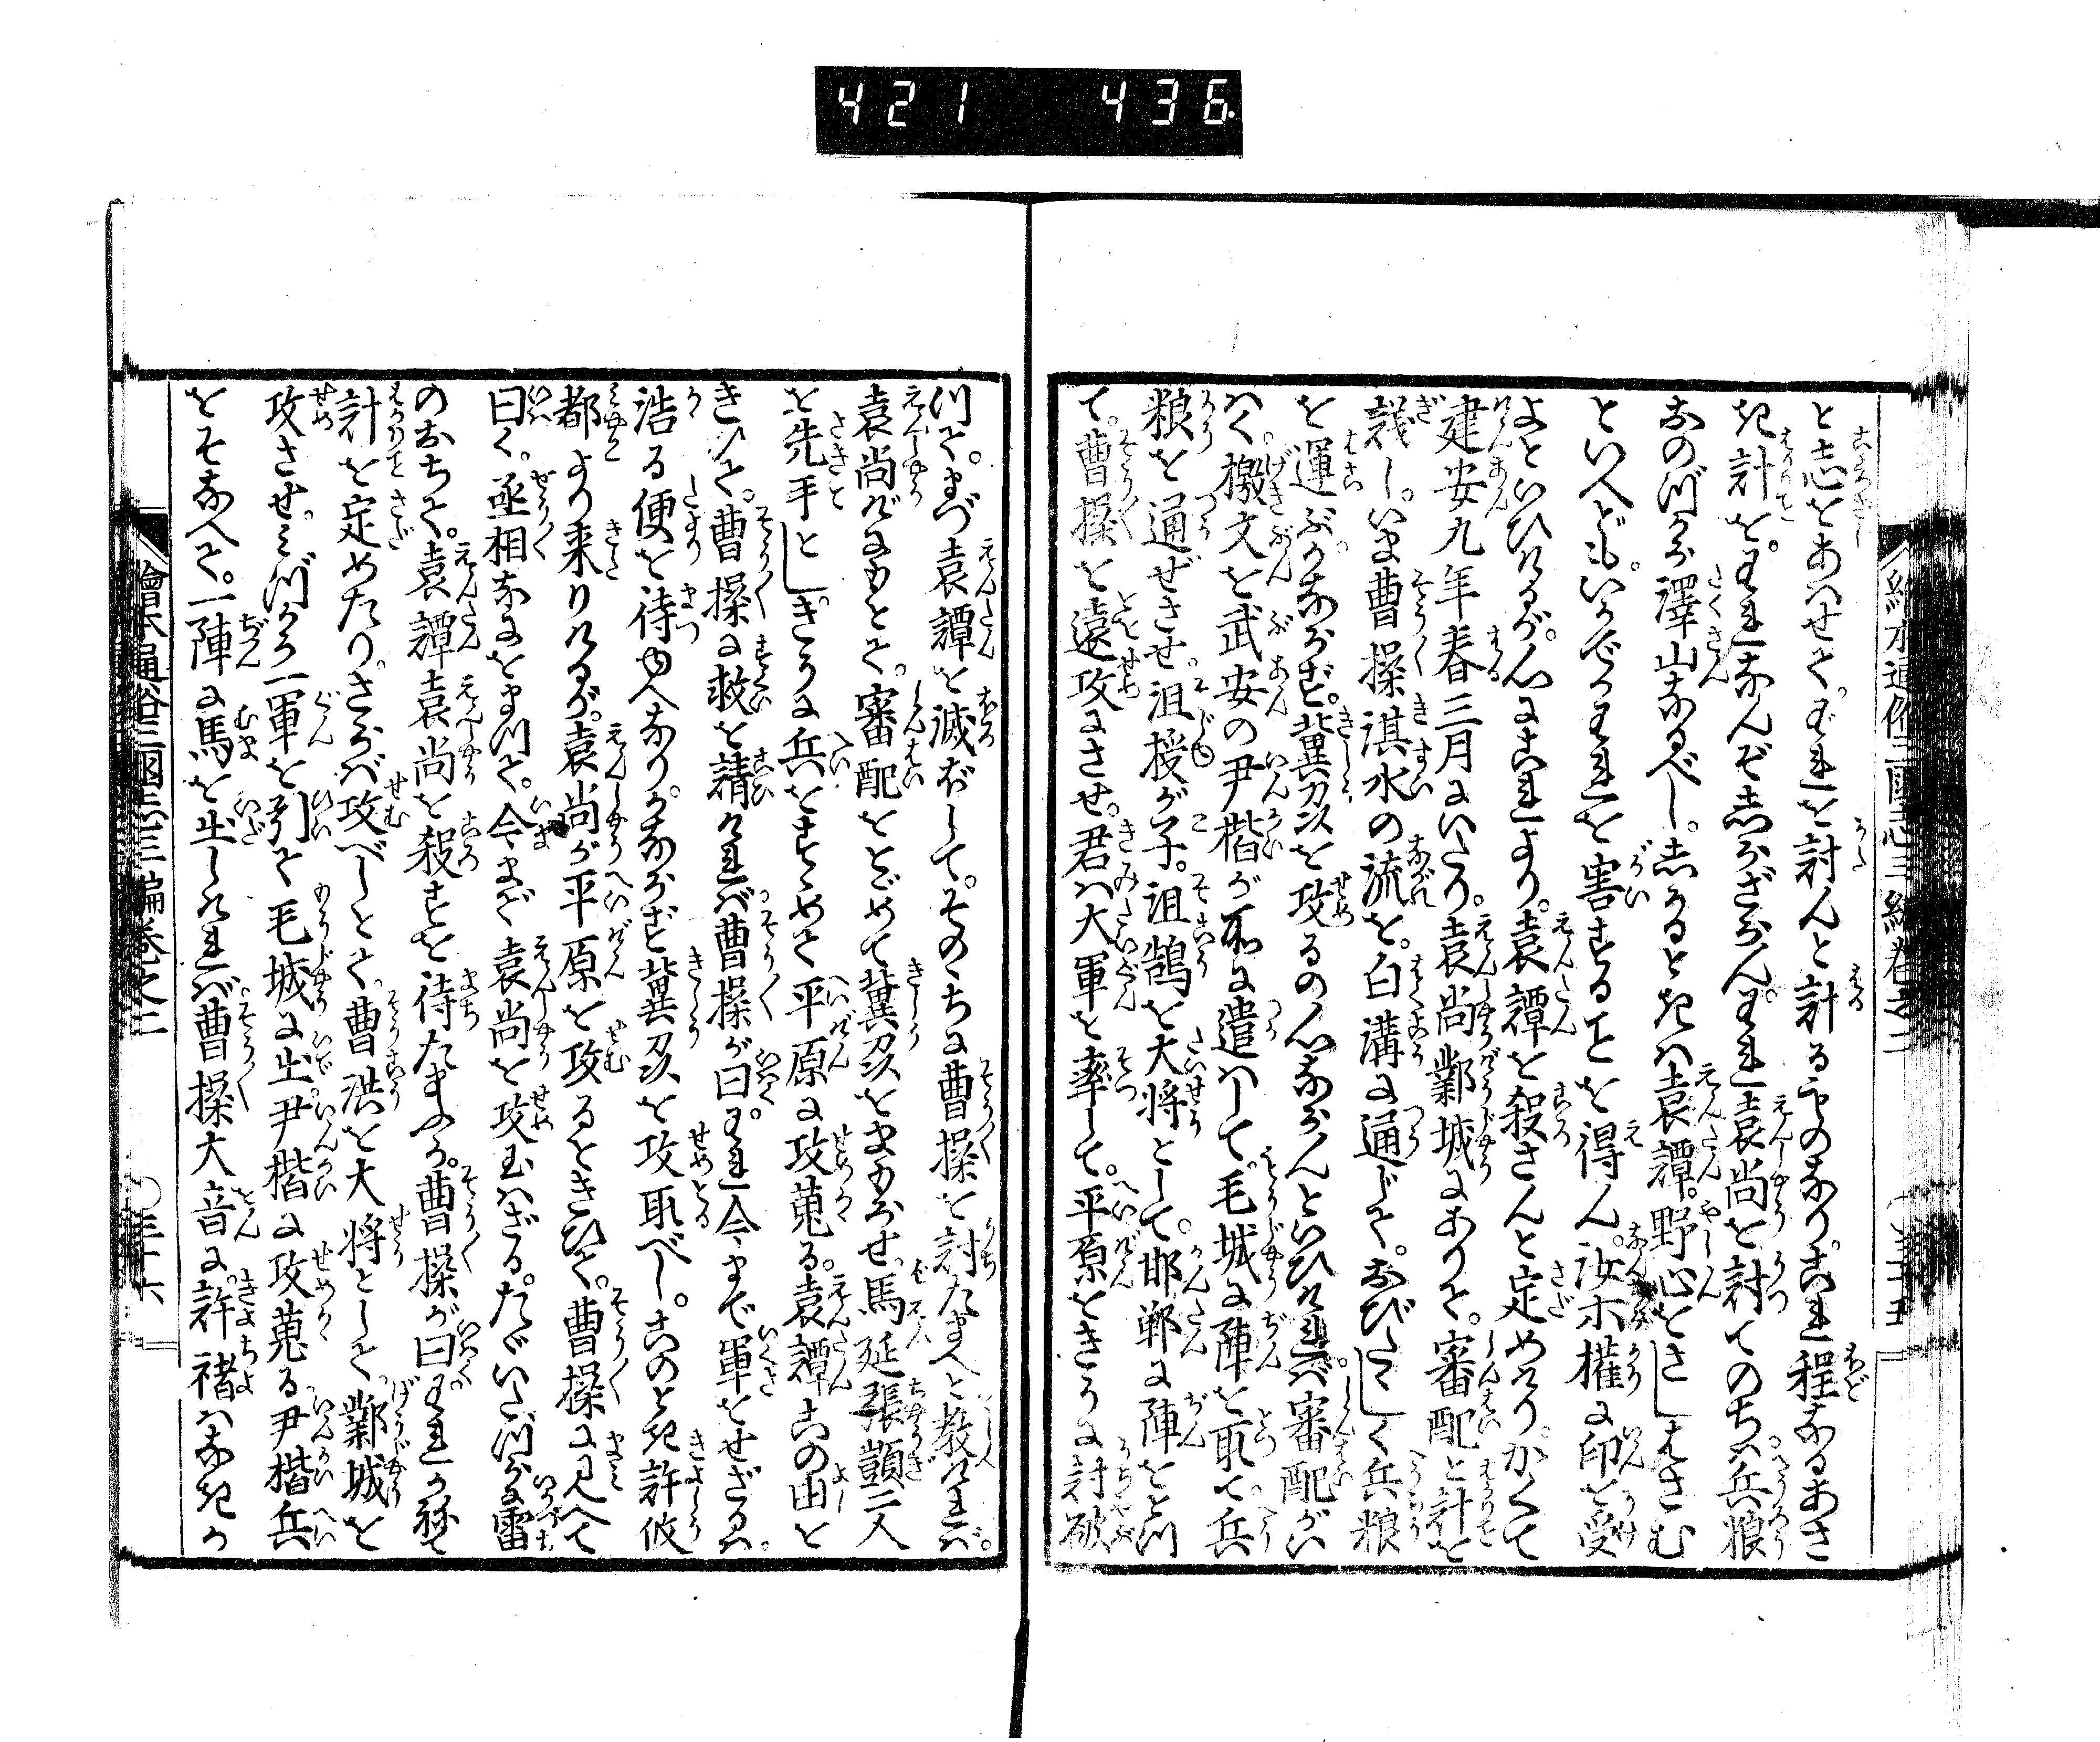 421 436
繪本通俗三國志三編卷之二 〇三十五
と志をあはせて。我を討んと計るものなり。われ程なるあさ
き計を。われなんぞ志らざらん。われ袁尚を討てのちハ兵粮
おのづから澤山なるべし。志かるときハ袁譚。野心をさしはさむ
といへども。いかでかわれを害することを得ん。汝ホ權に印を受
よといひけるが。心にこれより。袁譚を殺さんと定めけり。かくて
建安九年春三月にいたり。袁尚鄴城にありて。審配と計を
議し。いま曹操淇水の流を。白溝に通じて。おびたゝしく兵粮
を運ぶ。かならず。冀州を攻るの心ならんといひければ。審配がい
はく。檄文を武安の尹楷が所に遣はして。毛城に陣を取て兵
粮を通ぜさせ。沮授が子。沮鵠を大將として。邯鄲に陣をとつ
て。曹操を遠攻にさせ。君ハ大軍を率して。平原をきうに討破
つて。まづ袁譚を滅ぼして。そのゝちに曹操を討たまへと教ければ。
袁尚げにもとて。審配をとゞめて冀州をまもらせ。馬延張顗二人
を先手とし。きうに兵をすゝめて平原に攻蒐る。袁譚この由を
きひて。曹操に救を請ければ曹操が曰。われ今まで軍をせざるハ。
浩る便を待ゆへなり。かならず冀州を攻取べし。このとき許攸
都より来りけるが。袁尚が平原を攻るときひて。曹操に見へて
曰く。丞相なにをまつて。今まで袁尚を攻玉はざる。たゞいたづらに雷
のおちて。袁譚袁尚を殺すを待たまふか。曹操が曰。われかねて
計を定めたり。さらバ攻べしとて。曹洪を大將として。鄴城を
攻させ。みづから一軍を引て毛城に出。尹楷に攻蒐る。尹楷兵
をそなへて。一陣に馬を出しければ。曹操大音に。許褚ハなきか
繪本通俗三國志三編卷之二 〇三十六